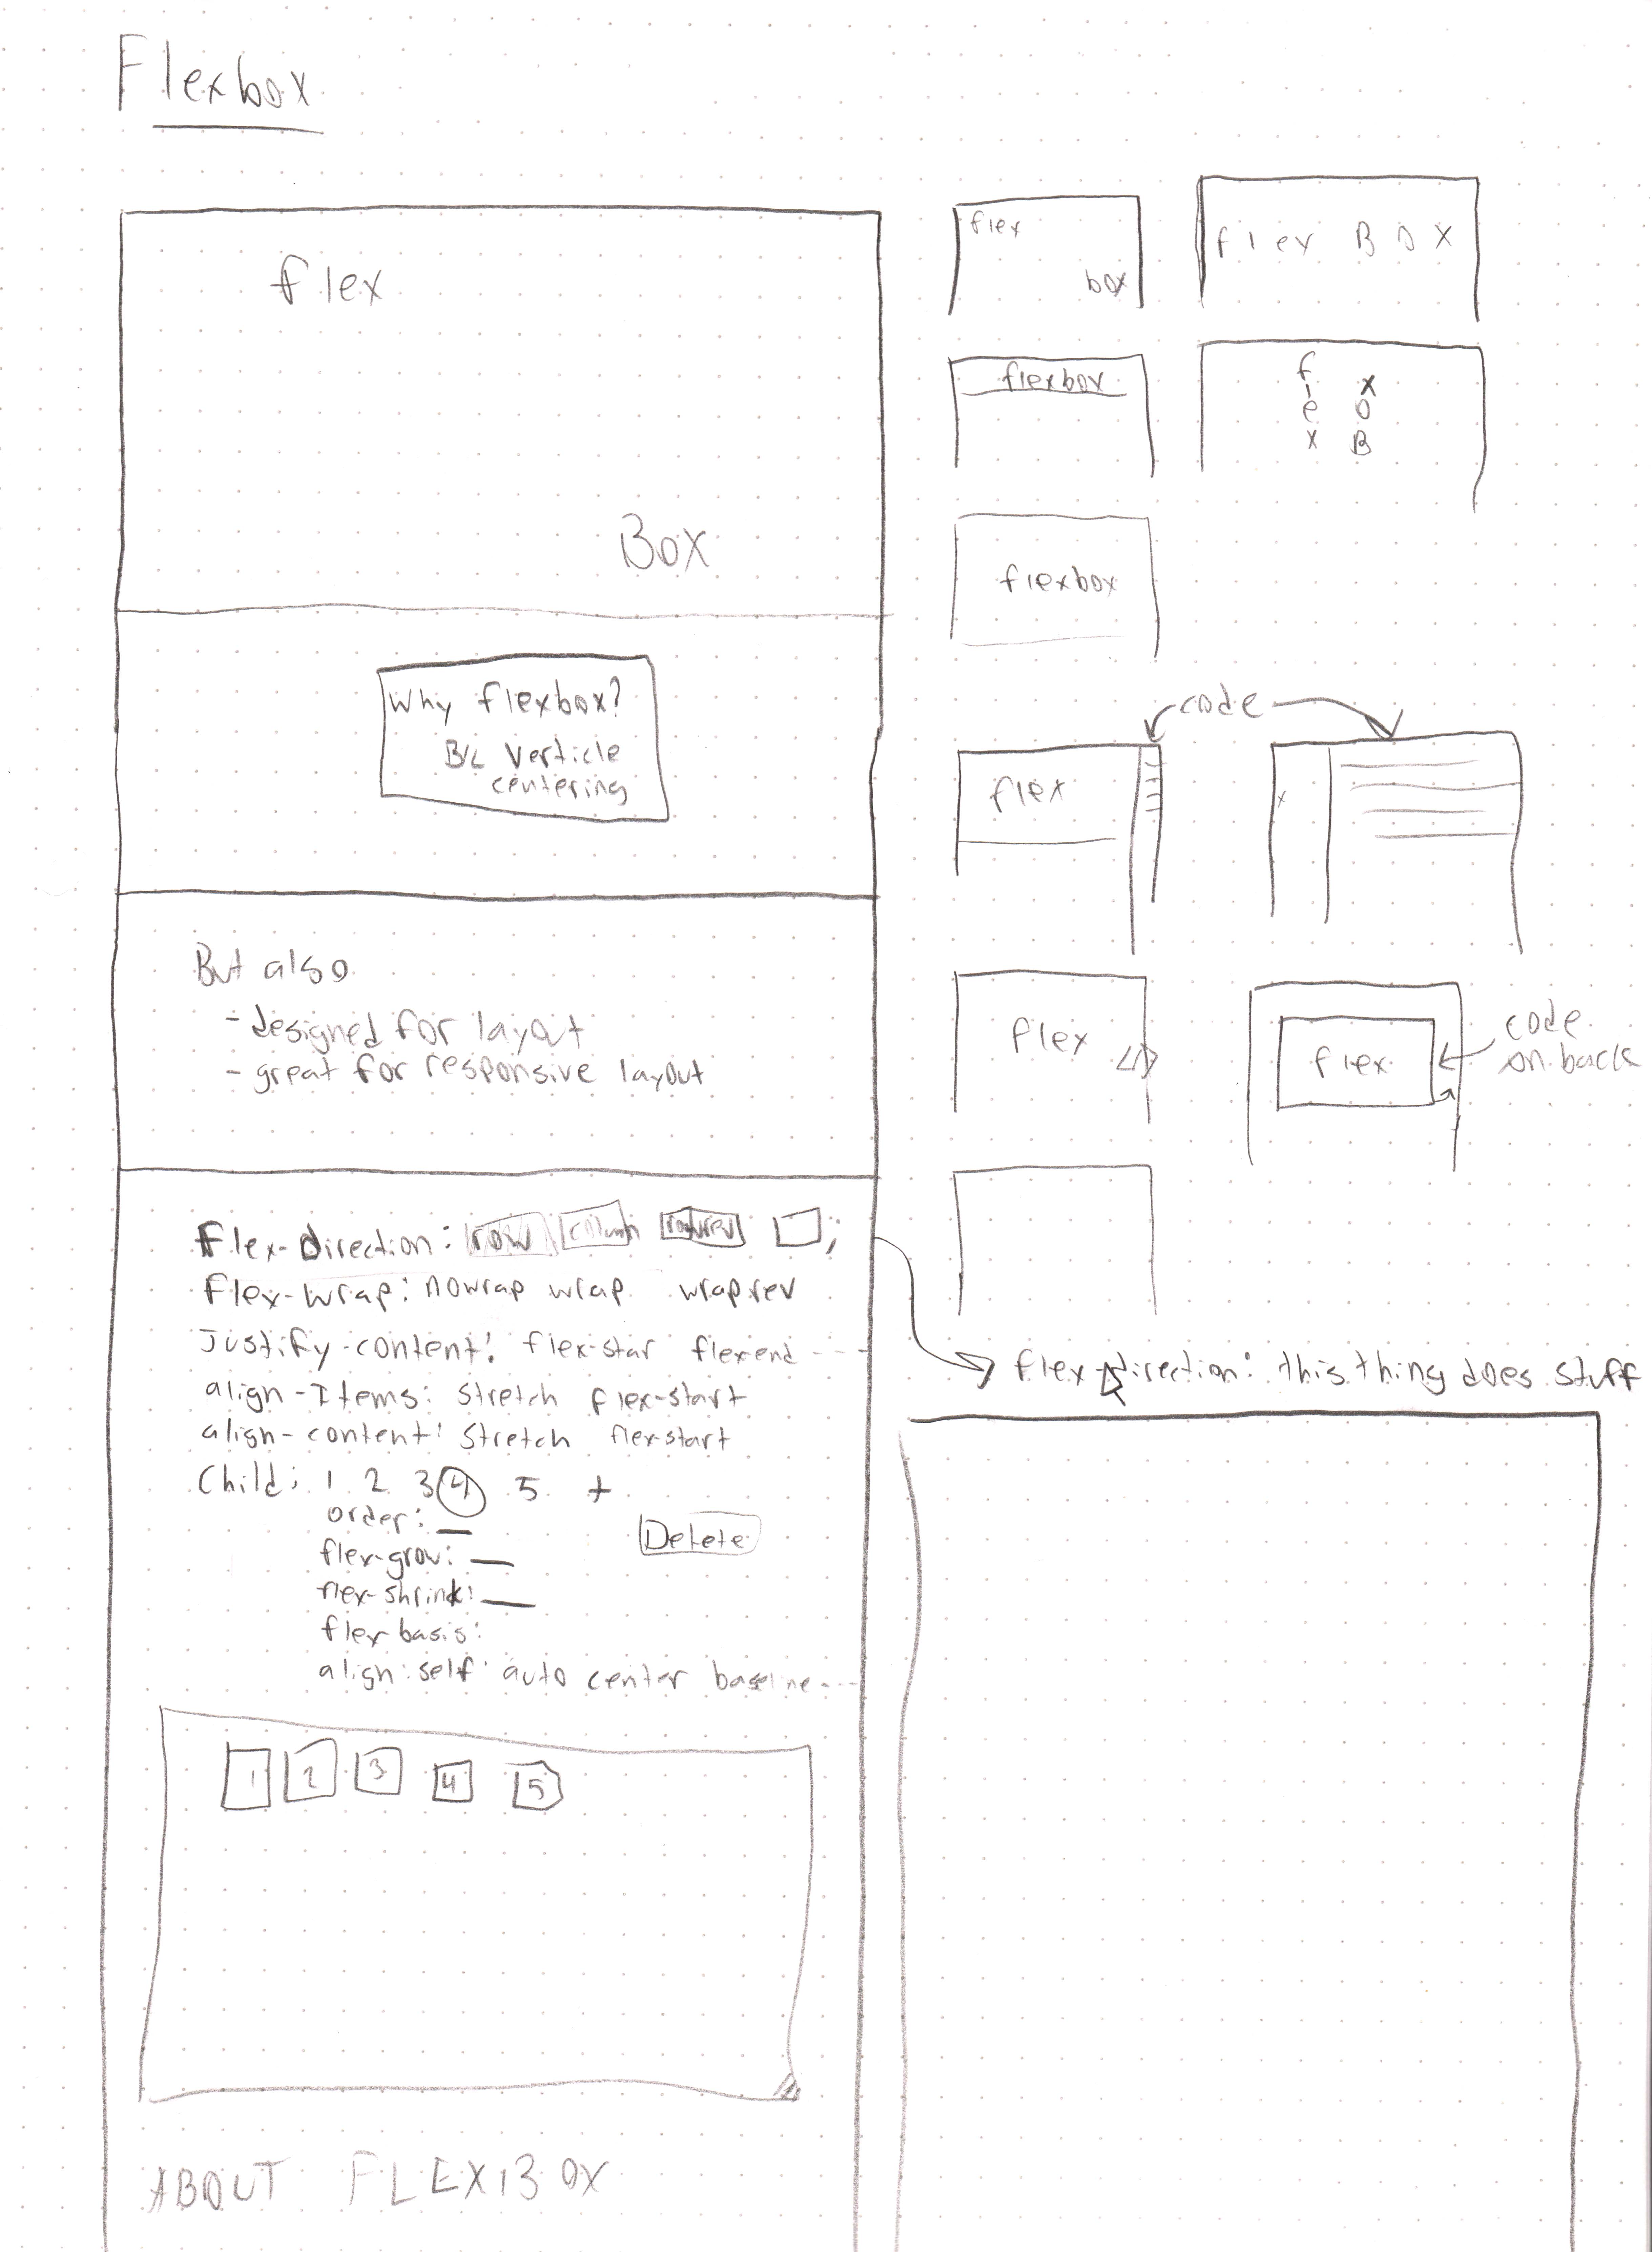 Flexbox
flex
Box
Why flexbox?
B/c Verticle
centering
But also
- designed for layout
- great for responsive layout
Flex-direction: row column rowrev ;
Flex-wrap: nowrap wrap wraprev
Justify-content: flex-star flexend ---
align-Items: stretch flex-start
align-content: stretch flexstart
Child: 1 2 3 4 5 +
order: __
Delete
flex-grow: __
flex-shrink: __
flex basis:
align-self: auto center baseline---
1 2 3 4 5
ABOUT FLEXIBOX
flex
box
flex BOX
flexbox
f
l x
e o
x B
flexbox
code
flex
x
flex </>
flex
code
on back
flex-direction: this thing does stuff